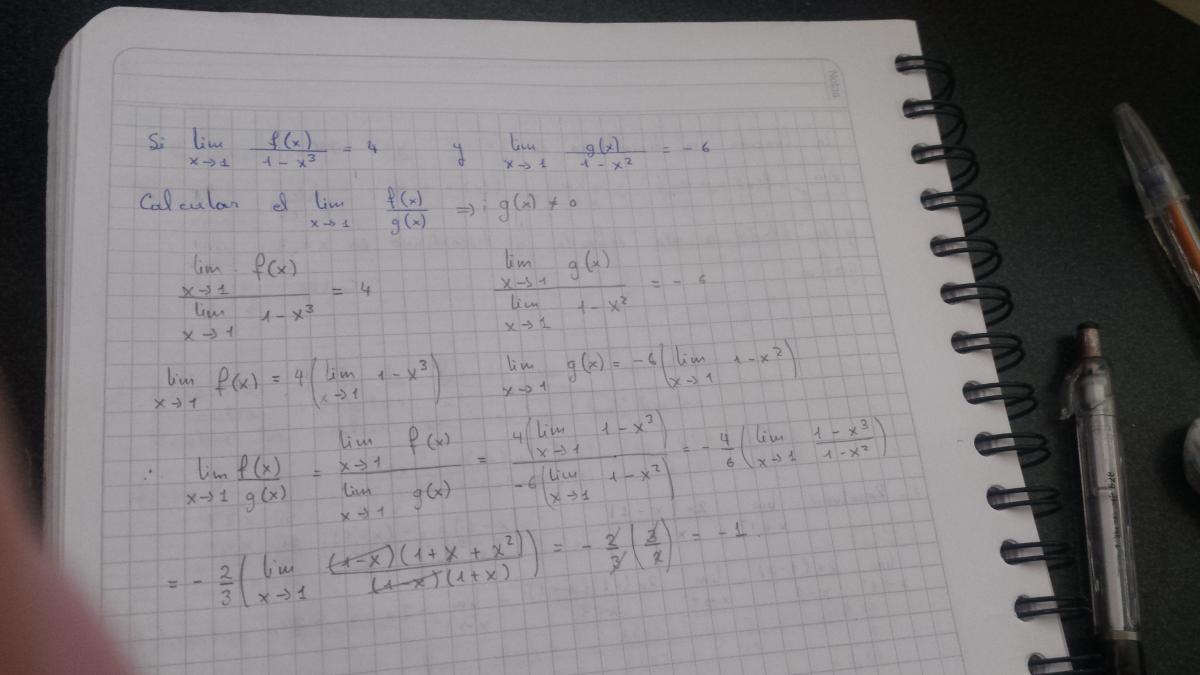 Si lim x→1 f(x)/(1-x³) = 4 y lim x→1 g(x)/(1-x²) = -6
Calcular el lim x→1 f(x)/g(x) ⇒ g(x) ≠ 0
lim x→1 f(x) / lim x→1 1-x³ = 4 lim x→1 g(x) / lim x→1 1-x² = -6
lim x→1 f(x) = 4(lim x→1 1-x³) lim x→1 g(x) = -6(lim x→1 1-x²)
∴ lim x→1 f(x)/g(x) = lim x→1 f(x) / lim x→1 g(x) = 4(lim x→1 1-x³) / -6(lim x→1 1-x²) = -4/6(lim x→1 (1-x³)/(1-x²))
= -2/3(lim x→1 (1-x)(1+x+x²)/(1-x)(1+x)) = -2/3(3/2) = -1.